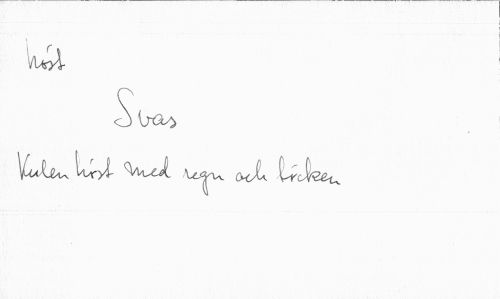 höst
Svas
Kulen höst med regn och töcken